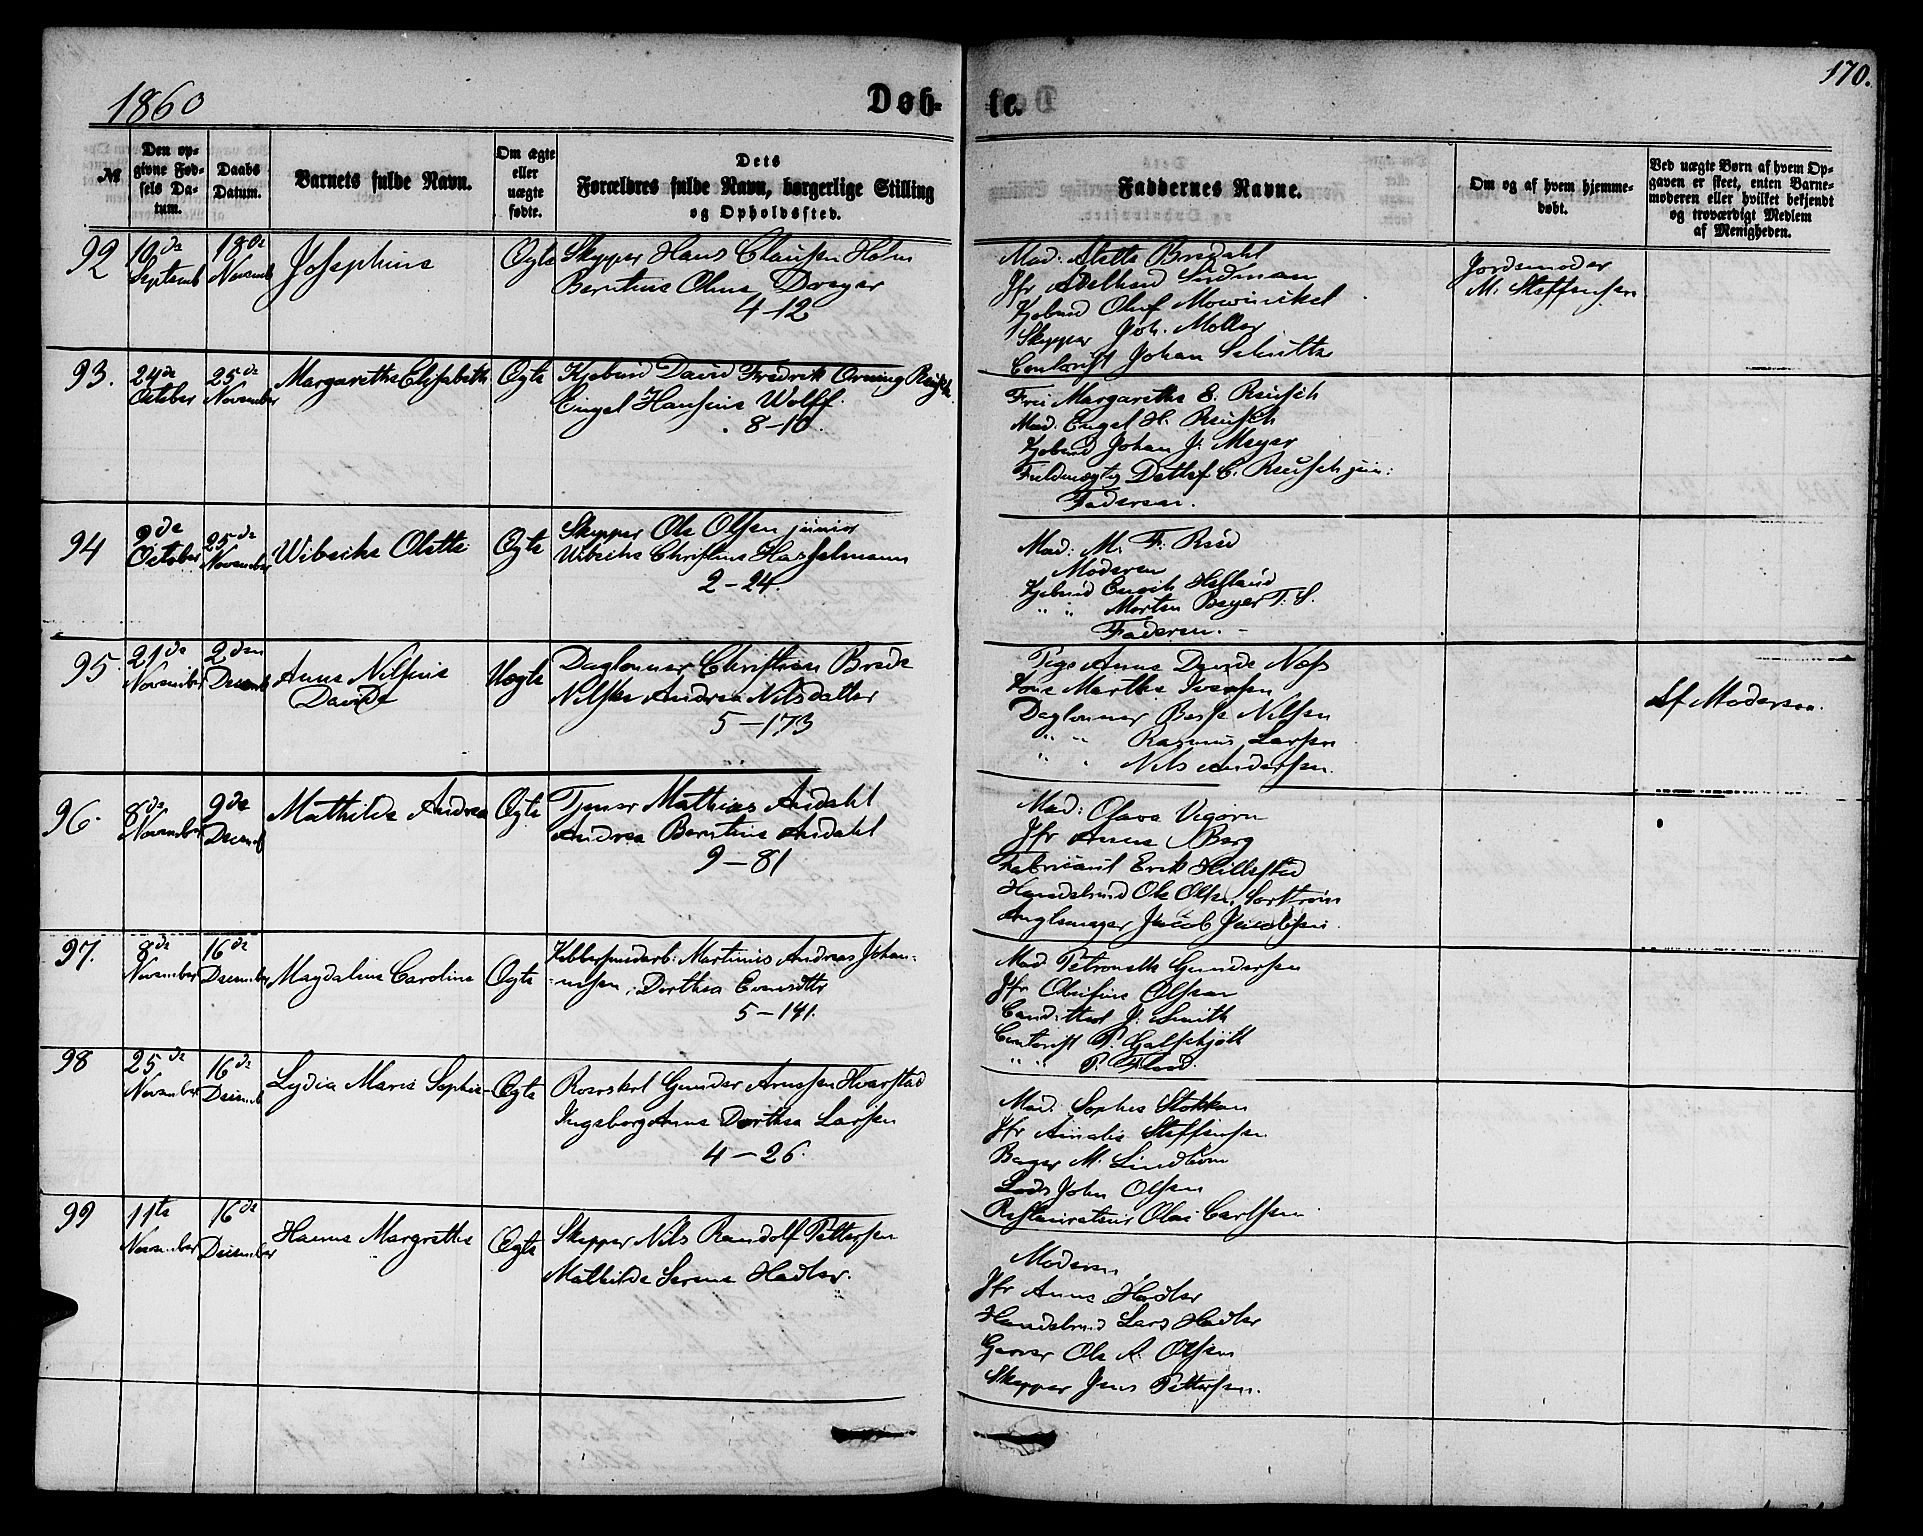 170.
1860
Døb-
te.
№
Den op-
givne Fød-
sels Da-
tum.
Daabs
Datum.
Barnets fulde Navn.
Om ægte
eller
uægte
fødte.
Dets
Forældres fulde Navn, borgerlige Stilling
og Opholdssted.
Faddernes Navne.
Om og af hvem hjemme-
døbt.
Ved uægte Børn af hvem Op-
gaven er skeet, enten Barne-
moderen eller hvilket bekjendt
og troværdigt Medlem
af Menigheden.
92
19de
Septemb
18de
Novemb
Josephine
Ægte
Skipper Hans Clausen Holm
Berntine Oline Dreyer
4-12
Mad: Alette Bredahl
Jfr Adelheid
Kjøbmd Oluf Mowinckel
Skipper Joh. Møller
Contorist Johan Schultz
Jordemoder
M. Steffensen
93.
24de
October
25de
November
Margarethe Elisabeth
Ægte
Kjøbmd David Fredrik Orning Reusch
Engel Hansine Wolff.
8-10.
Fru Margarethe E. Reusch
Mad. Engel H. Reusch
Kjøbmd Johan J. Meyer
Fuldmægtig Detlef C. Reusch jun:
Faderen.
94
9de
October
25de
November
Wibeche Olette
Ægte
Skipper Ole Olsen junior
Wibeche Christine Hasselmann
2-24.
Mad: M. F.
Moderen
Kjøbmd
" " Morten Beyer T. S.
Faderen. -
95.
21de
November
2den
Decemb
Anne Nilsine
Davide
Uægte
Daglønner Christian Brede
Nilske Andrea Nilsdatter
5-173
Pige Anne Davide Næss
Kone Marthe Iversen
Daglønner Nilsen
" " Rasmus Larsen
" " Nils Andersen.
Af Moderen.
96.
8de
November
9de
Decemb
Mathilde Andrea
Ægte
Tjener Mathias Ardahl
Andrea Berntine Ardahl
9-81
Mad: Olava Vigørn
Jfr Anne Berg
Fabricant Erik Hillestad
Handelsmd Ole Olsen
Jacob Jacobsen.
97.
8de
November
16de
December
Magdaline Caroline
Ægte
Kobbersmedarb: Martinus Andreas Johan-
-nesen, Dorthea
5-141.
Mad Petronelle Gundersen
Jfr Olsen
Cand: theol J. Smith
Contorist P. Galschjøtt
" " P. Flood.
98
25de
November
16de
Decemb
Lydia Marie Sophie
Ægte
Roerskarl Gunder Arnesen Hvarstad
Ingeborg Anne Dorthea Larsen
4-26.
Mad: Sophie Stokkan
Jfr Amalie Steffensen
Bager M. Lindbom
Lods John Olsen
Restaurateur Olai Carlsen
99
11te
November
16de
December
Hanne Margrethe
Ægte
Skipper Nils Randolf Pettersen
Mathilde Serene Hadler.
Moderen
Jfr Anne Hadler
Handelsmd Lars Hadler
Garver Ole A. Olsen
Skipper Jens Pettersen.